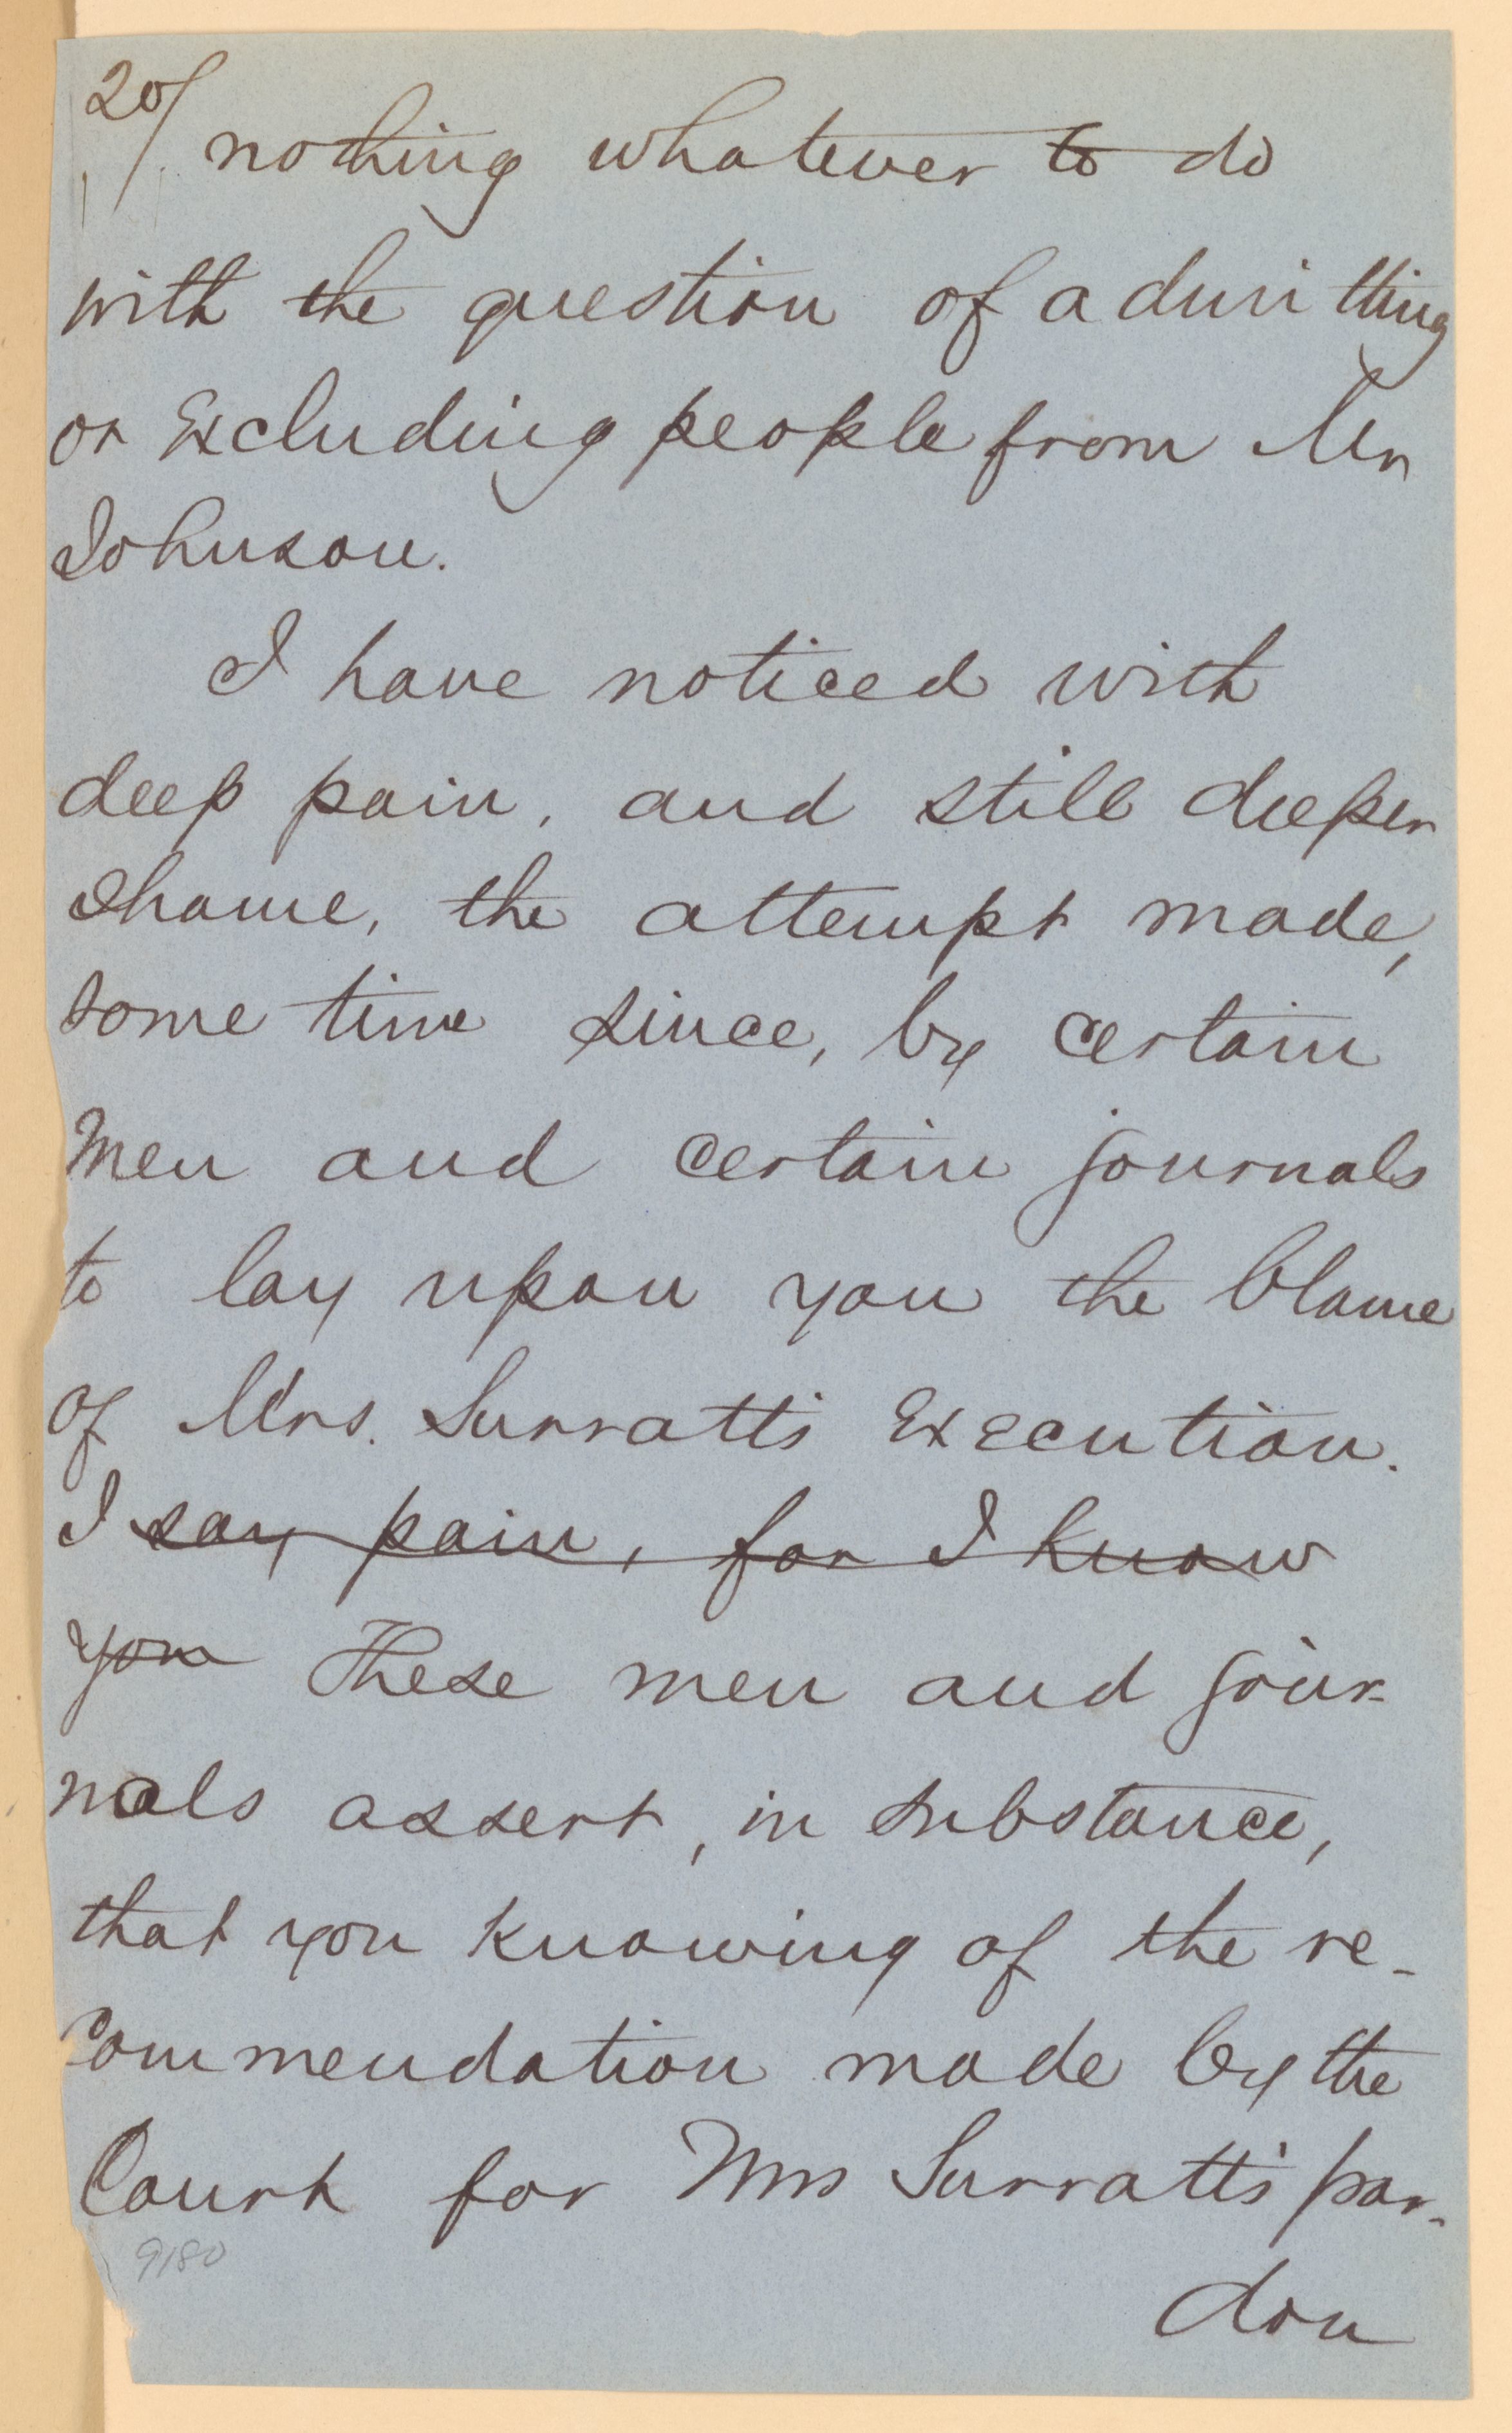 20/
nothing whatever to do
with the question of admitting
or Excluding people from Mr
Johnson.
I have noticed with
deep pain, and still deeper
shame, the attempt made,
some time since, by certain
Men and certain journals
to lay upon you the blame
of Mrs. Surratt's Execution.
I say pain, for I know
you These men and jour-
nals assert, in substance,
that you knowing of the re-
commendation made by the
Court for Mrs Surratt's par-
don
9180